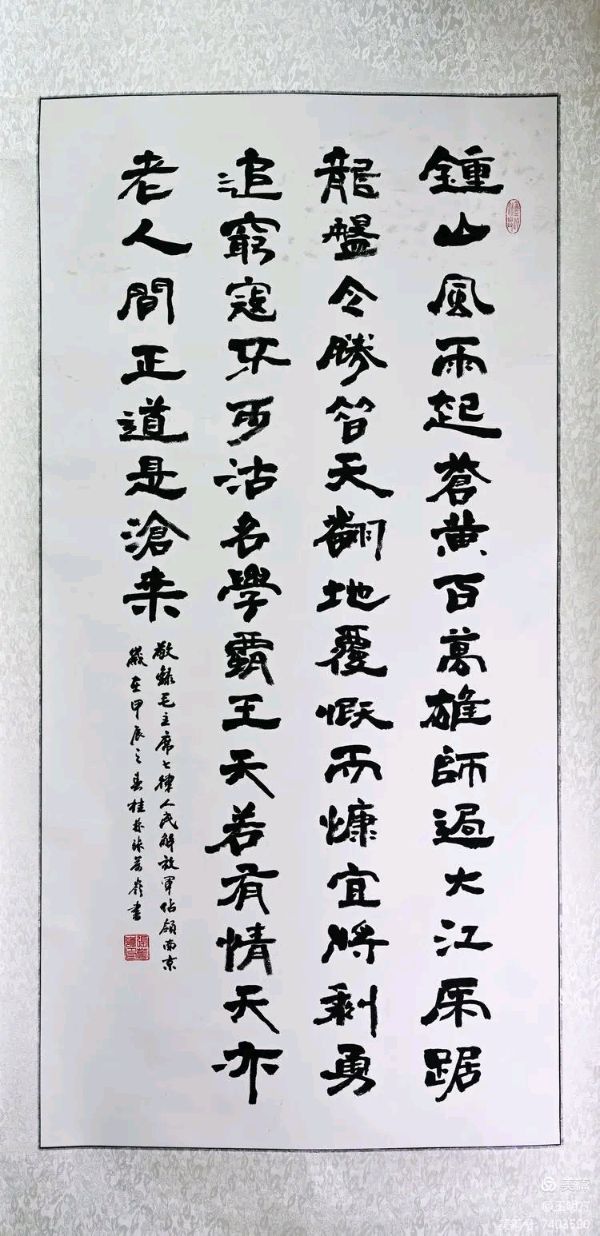 鍾山風雨起蒼黄百萬雄師過大江虎踞
龍盤今勝昔天翻地覆慨而慷宜將剩勇
追窮寇不可沽名學霸王天若有情天亦
老人間正道是滄桒
敬錄毛主席七律人民解放軍佔領南京
歲在甲辰之春桂林張書
美篇